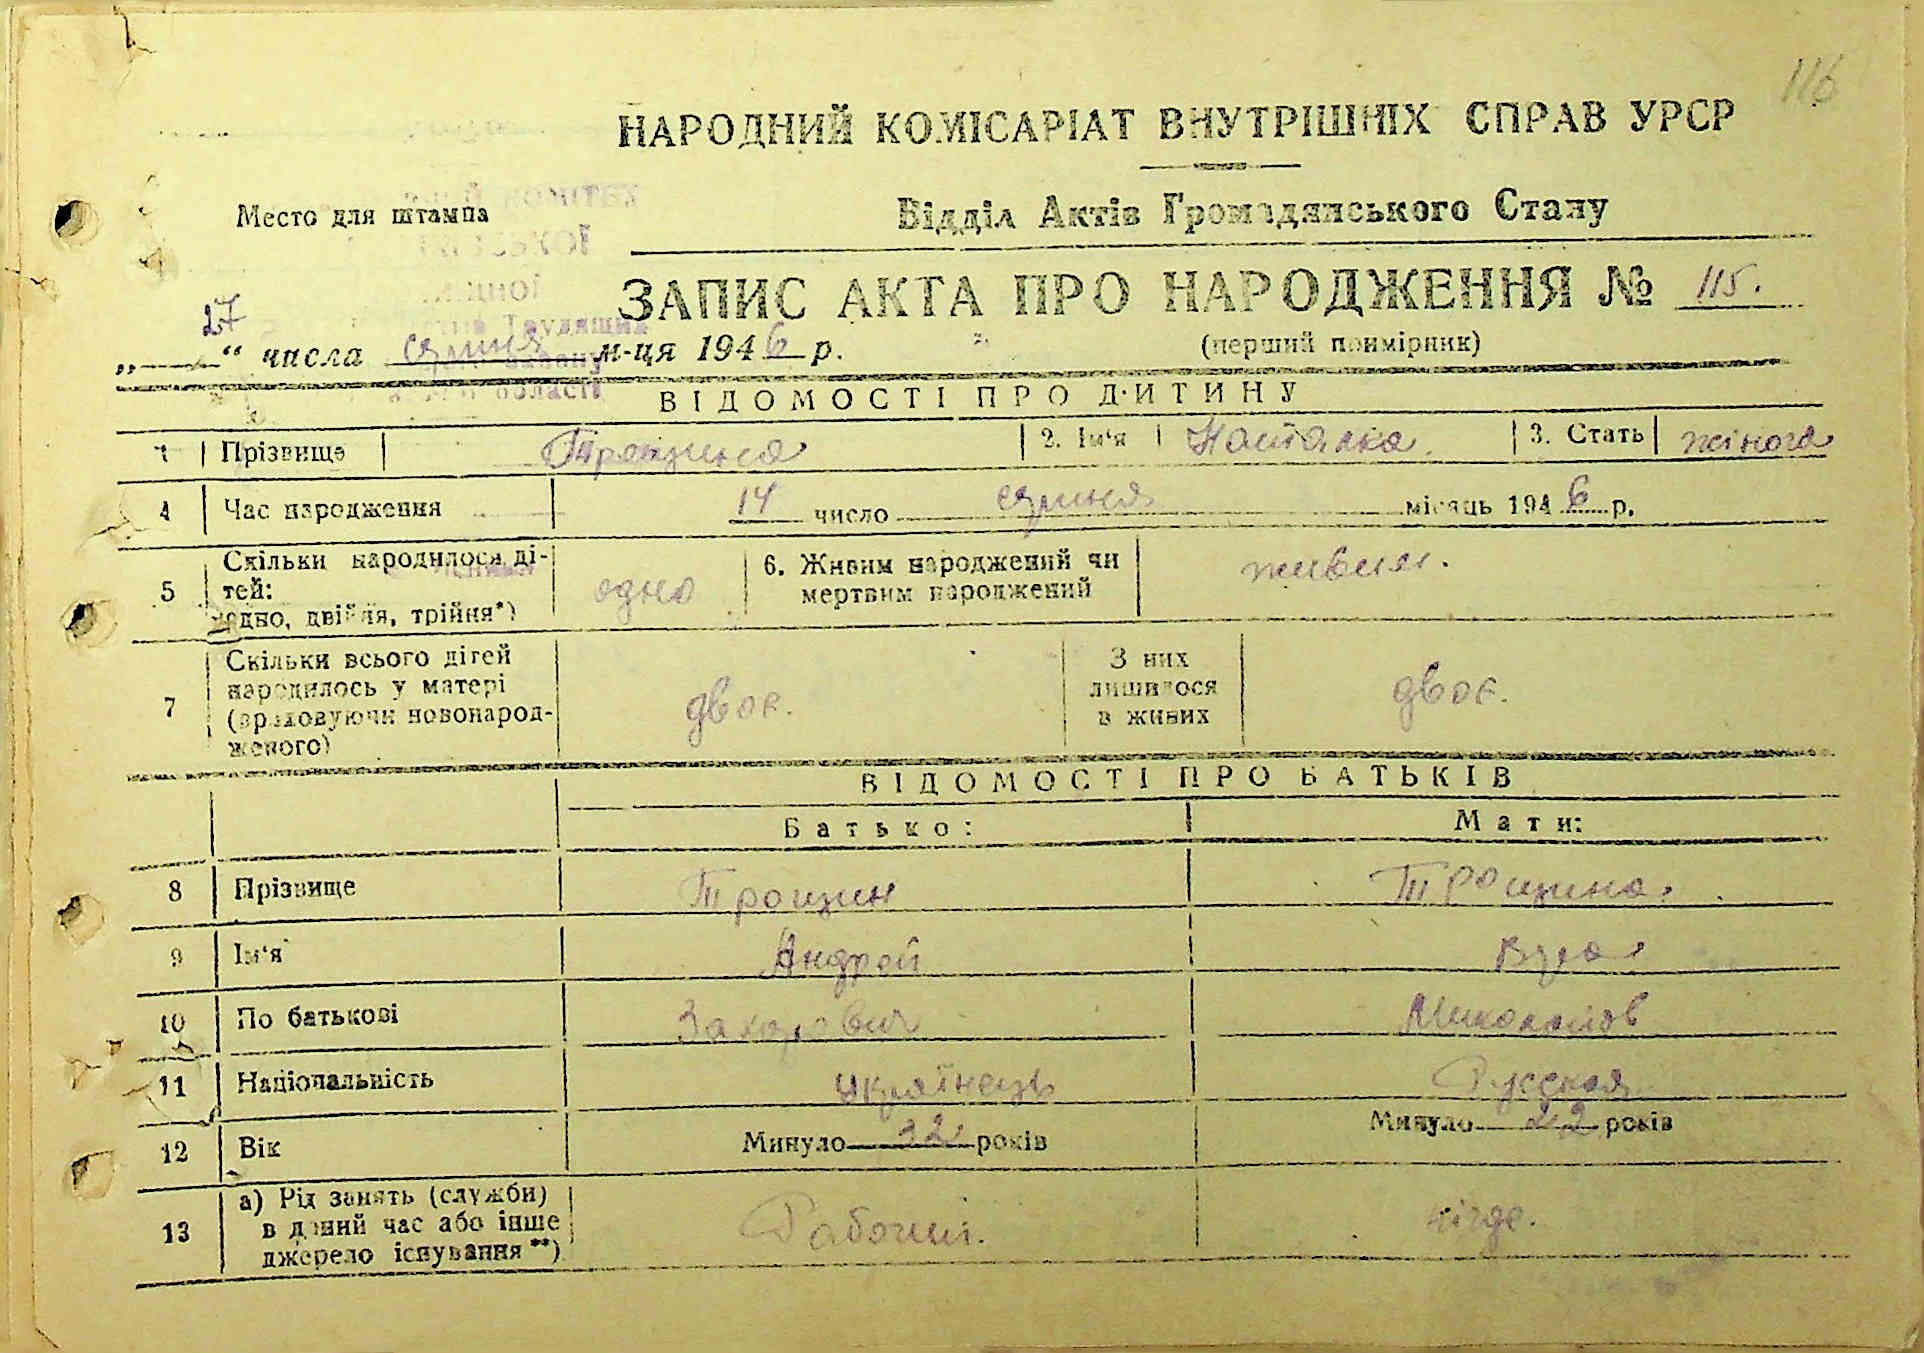 116
НАРОДНИЙ КОМІСАРІАТ ВНУТРІШНІХ СПРАВ УРСР
Место для штампа
Відділ Актів Громадянського Стану
ЗАПИС АКТА ПРО НАРОДЖЕННЯ № 115.
(перший примірник)
„27“ числа серпня м-ця 1946 р.
ВІДОМОСТІ ПРО ДИТИНУ
1 Прізвище Трощина 2. Ім'я Наталка. 3. Стать жіноча
4 Час народження 14 число серпня місяць 1946 р.
5 Скільки народилося ді-
тей:
одно, двійня, трійня*) одно
6. Живим народжений чи
мертвим народжений живим.
7 Скільки всього дітей
народилось у матері
(враховуючи новонарод-
женого) двоє.
З них
лишилося
в живих двоє.
ВІДОМОСТІ ПРО БАТЬКІВ
Батько: Мати:
8 Прізвище Трощин Трощина.
9 Ім'я Андрей Віра
10 По батькові Захарович Миколаїв
11 Національність Українець Русская
12 Вік Минуло 32 років Минуло 22 років
13 а) Рід занять (служби)
в даний час або інше
джерело існування**) Рабочий. нігде.